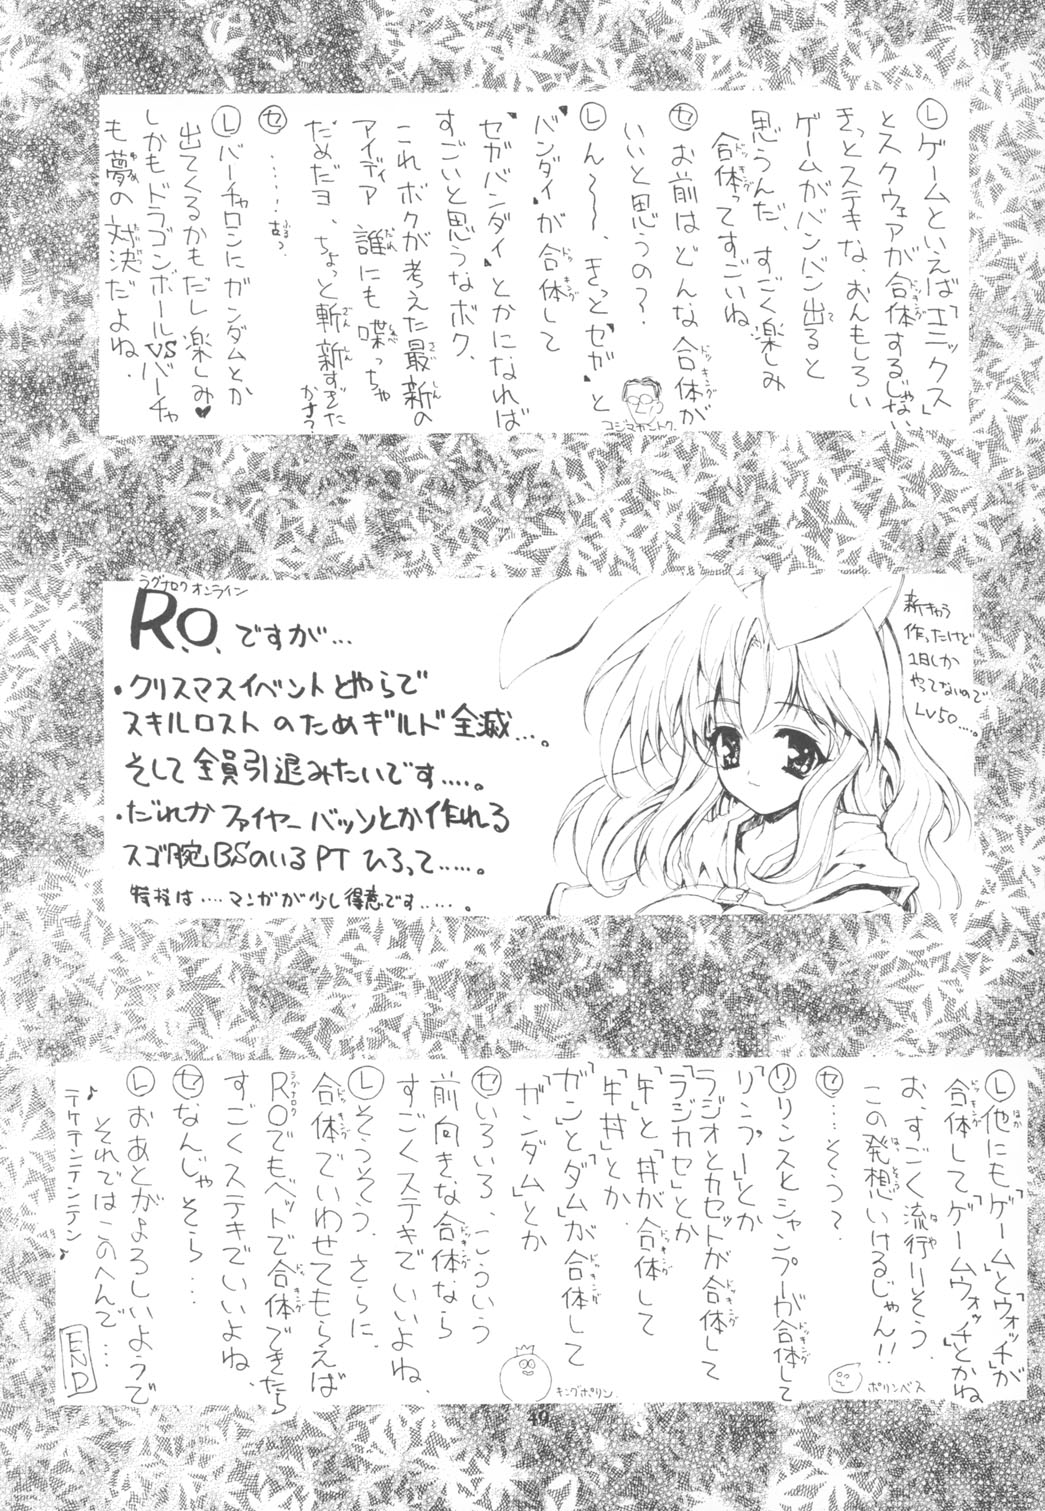 Ⓛゲームといえば「エニックス」
とスクウェアが合体するじゃない
きっとステキな、おんもしろい
ゲームがバンバン出ると
思うんだ、すごく楽しみ
合体ってすごいね
ドッキング
㊂お前はどんな合体が
いいと思うの？
Ⓛん〜〜〜、きっと"セガ"と
"バンダイ"が合体して
"セガバンダイ"とかになれば
すごいと思うなボク、
これボクが考えた最新の
アイディア 誰にも喋っちゃ
だめだヨ、ちょっと斬新すぎた
かナ？
㋝……古っ
Ⓛバーチャロンにガンダムとか
出てくるかもだし、楽しみ♥
しかもドラゴンボールVSバーチャ
も夢の対決だよね．
コジマカントク
ラグナロクオンライン
R.O.ですが…
・クリスマスイベントとやらで
スキルロストのためギルド全滅…。
そして全員引退みたいです….。
・だれかファイヤーバッソとか作れる
スゴ腕BSのいるPTひろって…..。
特技は….マンガが少し得意です…..。
新きゅう
作ったけど
1日しか
やってないので
LV50…。
Ⓛ他にも「ゲーム」と「ウォッチ」が
合体して「ゲームウォッチ」とかね
お、すごく流行りそう、
この発想いけるじゃん!!
㋝…そう？
㋷リンスとシャンプーが合体して
「リンプー」とか
ラジオとカセットが合体して
「ラジカセ」とか
「牛」と「丼」が合体して
「牛丼」とか、
「ガン」と「ダム」が合体して
「ガンダム」とか
㋝いろいろ、こういう
前向きな合体なら
すごくステキでいいよね、
Ⓛそうそう、さらに、
合体でいわせてもらえば
ROでもペットで合体できたら
すごくステキでいいよね、
㋝なんじゃそら…
Ⓛおあとがよろしいようで
それではこのへんで…
♪テケテンテンテン♪
END
ポリンベス
キングポリン
49